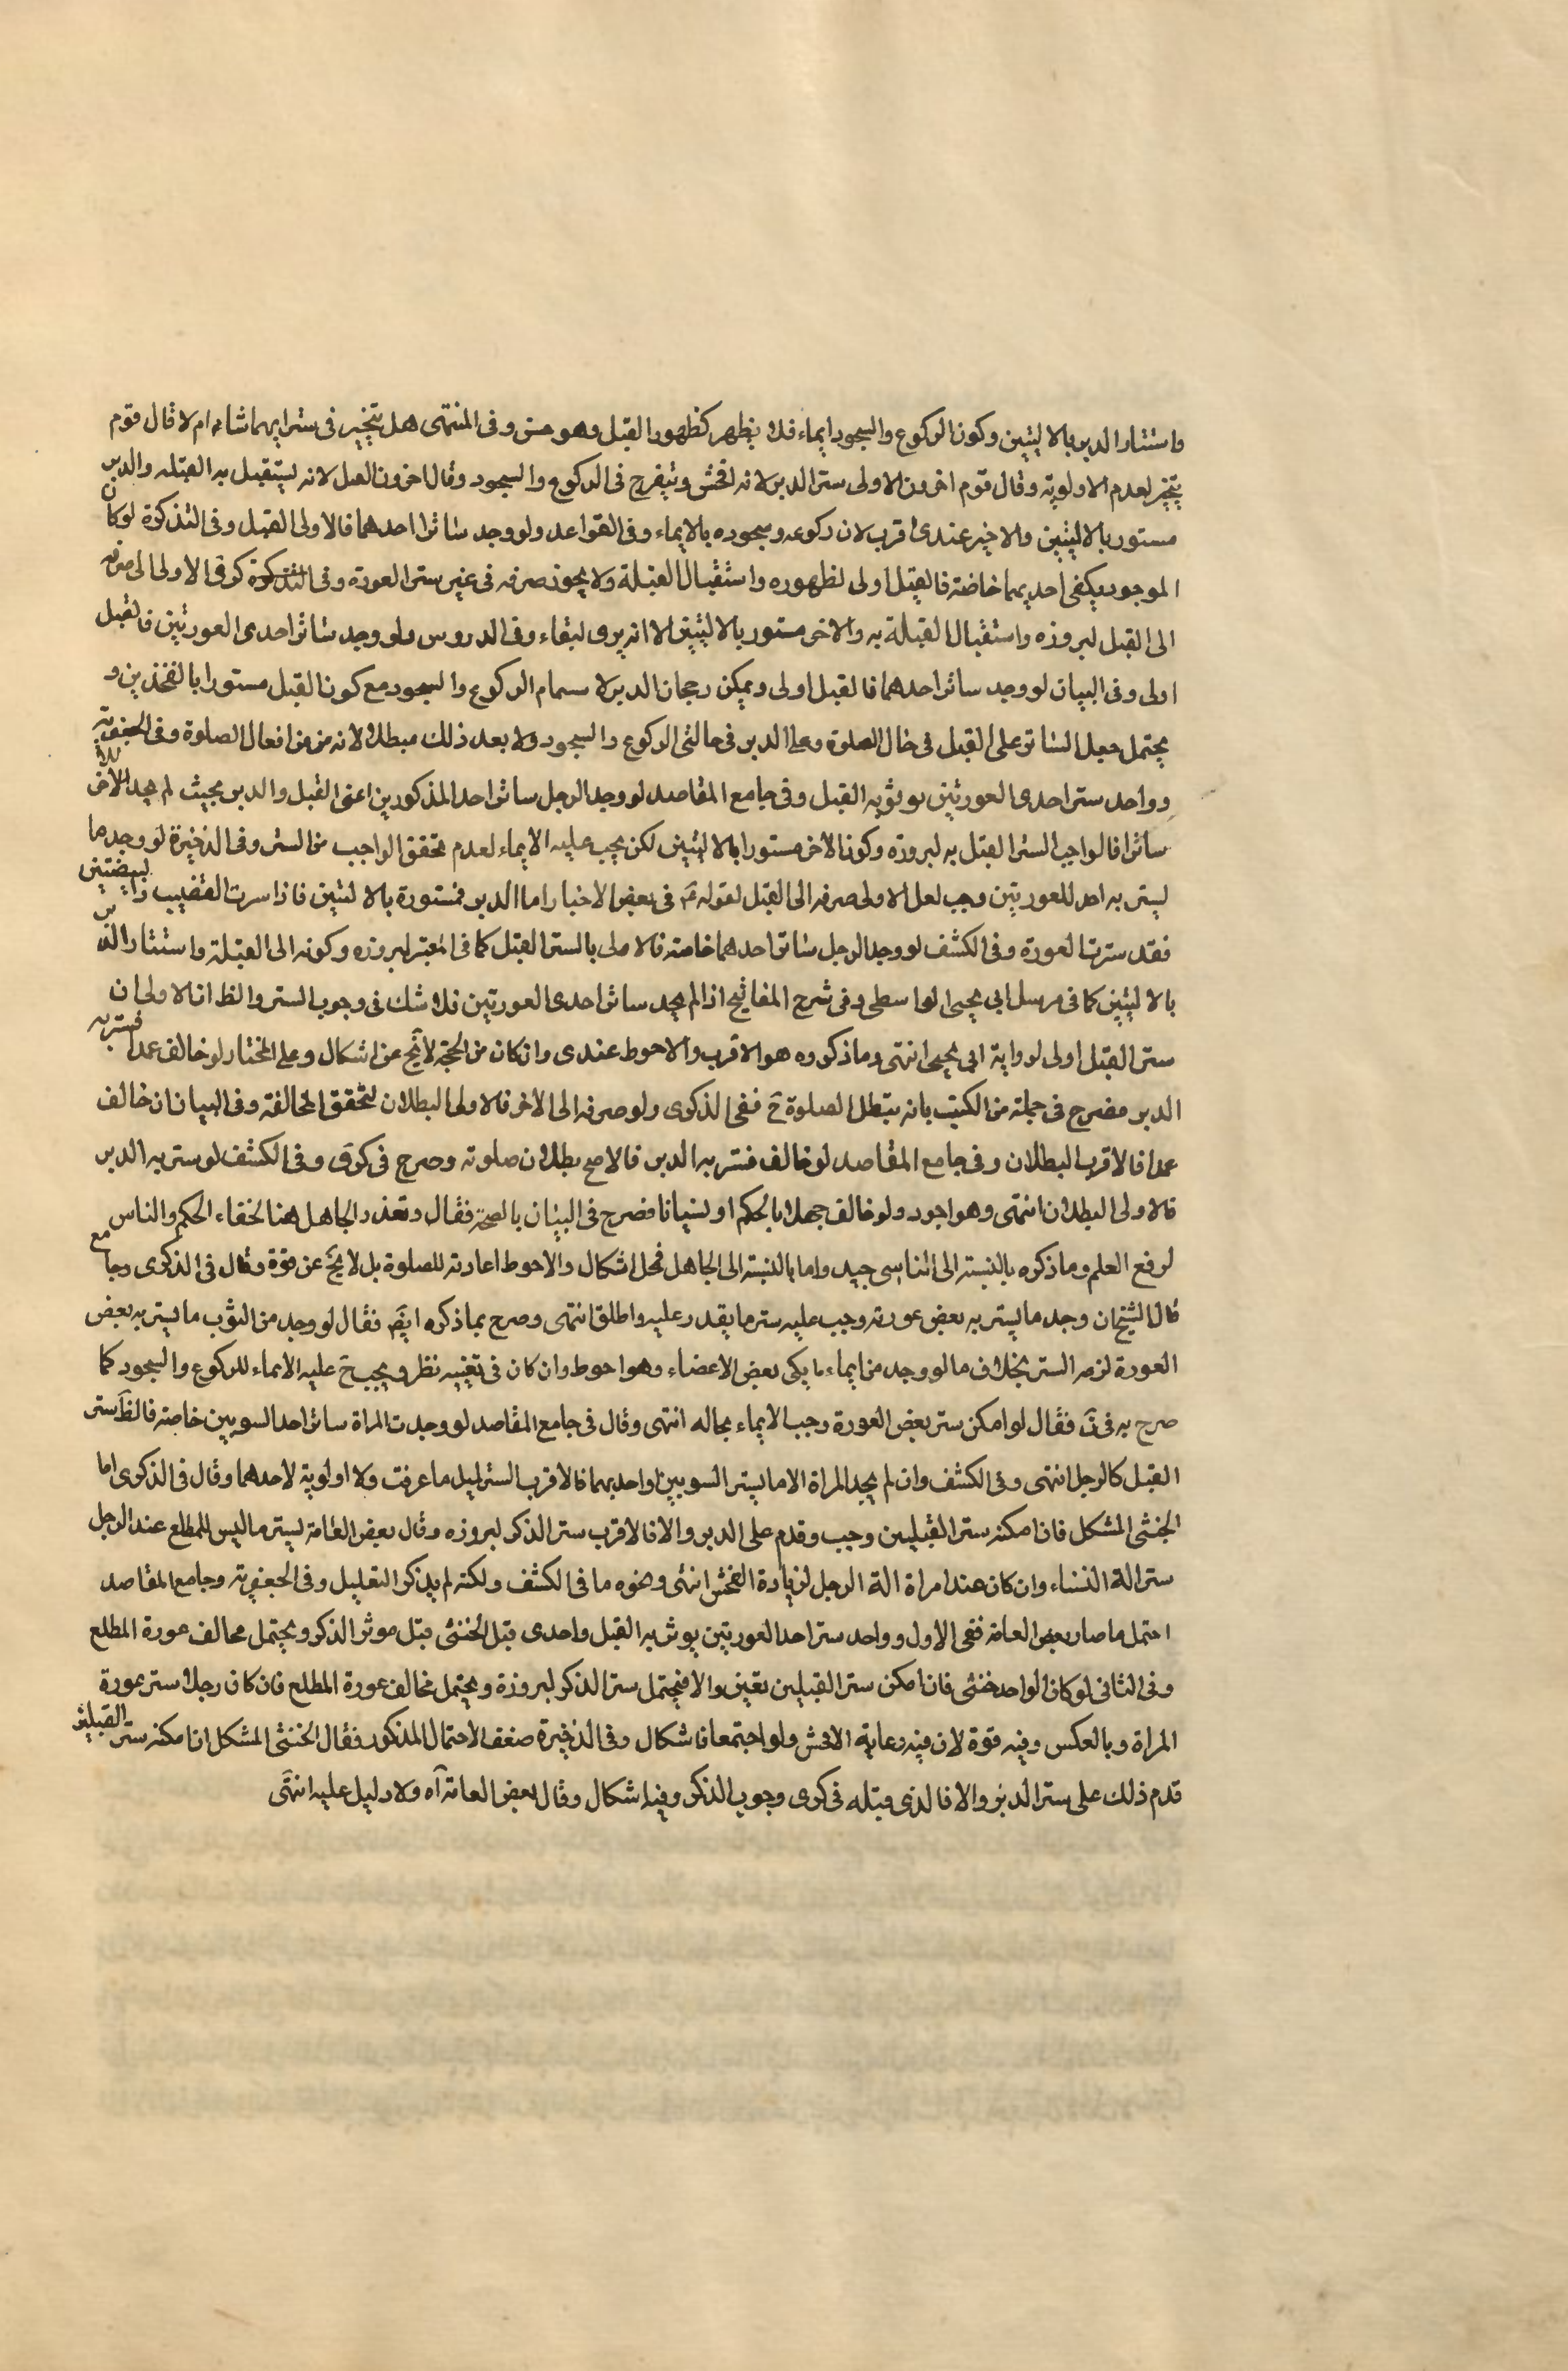 واستتار الدبر بالاليتين وكون الركوع والسجود ايماء فلا يظهر كظهور القبل وهو حسن وفى المنتهى هل يتخير فى ستر ايهما شاء ام لا قال قوم
يتخير لعدم الاولوية وقال قوم اخرون الاولى ستر الدبر لانه افحش وينفرج فى الركوع والسجود وقال اخرون القبل لانه يستقبل به القبلة والدبر
مستور بالاليتين والاخير عندى اقرب لان ركوعه وسجوده بالايماء وفى القواعد ولو وجد ساتر احدهما فالاولى القبل وفى التذكرة لو كان
الموجود يكفى احديهما خاصة فالقبل اولى لظهوره واستقبال القبلة ولا يجوز صرفه فى غير ستر العورة وفى التذكرة كرى الاولى صرفه
الى القبل لبروزه واستقبال القبلة به والاخر مستور بالاليتين الا انه وفى الدروس ولو وجد ساتر احدى العورتين فالقبل
اولى وفى البيان لو وجد ساتر احدهما فالقبل اولى ويمكن رجحان الدبر لا الركوع والسجود مع كون القبل مستورا بالفخذين و
يحتمل جعل الساتر على القبل فى حال الصلوة وعلى الدبر فى حالتى الركوع والسجود ولا يعد ذلك مبطلا لانه من افعال الصلوة وفى الجعفرية
وواجد ستر احدى العورتين يوثر به القبل وفى جامع المقاصد لو وجد الرجل ساتر احد المذكورين اعنى القبل والدبر بحيث لم يجد للاخر
ساترا فالواجب الستر القبل به لبروزه وكون الاخر مستورا بالاليتين لكن يجب عليه الايماء لعدم تحقق الواجب من الستر وفى الذخيرة لو وجد ما
يستر به احد للعورتين وجب لعل الاولى صرفه الى القبل لقوله ع فى بعض الاخبار اما الدبر فمستورة بالاليتين فاذا سترت القضيب والبيضتين
فقد سترت العورة وفى الكشف لو وجد الرجل ساتر احدهما خاصة فالاولى بالستر القبل كما فى المعتبر لبروزه وكونه الى القبلة واستتار الدبر
بالاليتين كما فى مرسل ابى يحيى الواسطى وفى شرح المفاتيح اذا لم يجد ساتر احدى العورتين فلا شك فى وجوب الستر والظ ان الاولى ان
ستر القبل اولى لرواية ابى يحيى انتهى وما ذكروه هو الاقرب والاحوط عندى وان كان من الحجة لا يخ عن اشكال وعلى المختار لو خالف عمدا فستر به
الدبر فصرح فى جملة من الكتب بانه يبطل الصلوة ح ففى الذكرى ولو صرفه الى الاخر فالاولى البطلان لتحقق المخالفة وفى البيان ان خالف
عمدا فالاقرب البطلان وفى جامع المقاصد لو خالف فستر به الدبر فالاصح بطلان صلوته وصرح فى كرى وفى الكشف لو ستر به الدبر
فالاولى البطلان انتهى وهو اجود ولو خالف جهلا بالحكم او نسيانا فصرح فى البيان بالصحة فقال ويعذر الجاهل هنا لخفاء الحكم والناس
لرفع العلم وما ذكره بالنسبة الى الناسى جيد واما بالنسبة الى الجاهل فمحل اشكال والاحوط اعادته للصلوة بل لا يخ عن قوة وقال فى الذكرى وجامع
قال الشيخان وجد ما يستر به بعض عورته وجب عليه ستر ما يقدر عليه واطلق انتهى وصرح بما ذكره ايض فقال لو وجد من الثوب ما يستر به بعض
العورة لزمه الستر بخلاف ما لو وجد من الماء ما يكفى بعض الاعضاء وهو احوط وان كان فى تعينه نظر ويجب ح عليه الايماء للركوع والسجود كما
صرح به فى ن فقال لو امكن ستر بعض العورة وجب الايماء بحاله انتهى وقال فى جامع المقاصد لو وجدت المراة ساتر احد السوئين خاصة فالظ ستر
القبل كالرجل انتهى وفى الكشف وان لم يجد المراة الا ما يستر السوئين او احديهما فالاقرب الستر لمثل ما عرفت ولا اولوية لاحدهما وقال فى الذكرى اما
الخنثى المشكل فان امكنه ستر القبلين وجب وقدم على الدبر والا فالاقرب ستر الذكر لبروزه وقال بعض العامة يستر ما ليس للمطلع عند الرجل
ستر الة النساء وان كان عند امراة الة الرجل لزيادة الفحش انتهى ونحوه ما فى الكشف ولكنه لم يذكر التعليل وفى الجعفرية وجامع المقاصد
احتمل ما صار بعض العامة ففى الاول وواجد ستر احد العورتين يوثر به القبل واحدى قبل الخنثى قبل موثر الذكر ويحتمل مخالف عورة المطلع
وفى الثانى لو كان الواجد خنثى فان امكن ستر القبلين تعين والا فيحتمل ستر الذكر لبروزه ويحتمل مخالف عورة المطلع فان كان رجلا ستر عورة
المراة وبالعكس وفيه قوة لان فيه رعاية الافحش ولو اجتمعا فاشكال وفى الذخيرة ضعف الاحتمال المذكور فقال الخنثى المشكل ان امكنه ستر القبلين
قدم ذلك على ستر الدبر والا فالذى قبله فى كرى وجوب الذكر وفيه اشكال وقال بعض العامة آه ولا دليل عليه انتهى